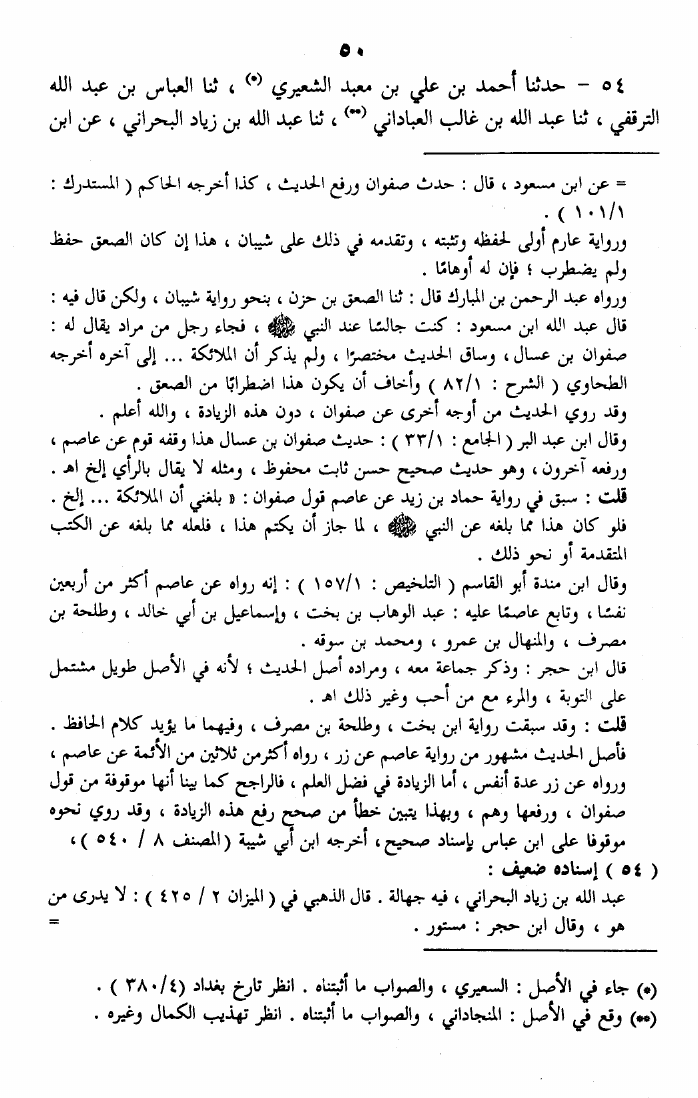 ٥٠
٥٤ - حدثنا أحمد بن علي بن معبد الشعيري (*) ، ثنا العباس بن عبد الله
الترقفي ، ثنا عبد الله بن غالب العباداني (**) ، ثنا عبد الله بن زياد البحراني ، عن ابن
= عن ابن مسعود ، قال : حدث صفوان ورفع الحديث ، كذا أخرجه الحاكم ( المستدرك :
١٠١/١ ) .
ورواية عارم أولى لحفظه وتثبته ، وتقدمه في ذلك على شيبان ، هذا إن كان الصعق حفظ
ولم يضطرب ؛ فإن له أوهامًا .
ورواه عبد الرحمن بن المبارك قال : ثنا الصعق بن حزن ، بنحو رواية شيبان ، ولكن قال فيه :
قال عبد الله ابن مسعود : كنت جالسًا عند النبي ﷺ ، فجاء رجل من مراد يقال له :
صفوان بن عسال ، وساق الحديث مختصرًا ، ولم يذكر أن الملائكة ... إلى آخره أخرجه
الطحاوي ( الشرح : ٨٢/١ ) وأخاف أن يكون هذا اضطرابًا من الصعق .
وقد روي الحديث من أوجه أخرى عن صفوان ، دون هذه الزيادة ، والله أعلم .
وقال ابن عبد البر ( الجامع : ٣٣/١ ) : حديث صفوان بن عسال هذا وقفه قوم عن عاصم ،
ورفعه آخرون ، وهو حديث صحيح حسن ثابت محفوظ ، ومثله لا يقال بالرأي إلخ اهـ .
قلت : سبق في رواية حماد بن زيد عن عاصم قول صفوان : « بلغني أن الملائكة ... إلخ .
فلو كان هذا مما بلغه عن النبي ﷺ ، لما جاز أن يكتم هذا ، فلعله مما بلغه عن الكتب
المتقدمة أو نحو ذلك .
وقال ابن مندة أبو القاسم ( التلخيص : ١٥٧/١ ) : إنه رواه عن عاصم أكثر من أربعين
نفسًا ، وتابع عاصمًا عليه : عبد الوهاب بن بخت ، وإسماعيل بن أبي خالد ، وطلحة بن
مصرف ، والمنهال بن عمرو ، ومحمد بن سوقه .
قال ابن حجر : وذكر جماعة معه ، ومراده أصل الحديث ؛ لأنه في الأصل طويل مشتمل
على التوبة ، والمرء مع من أحب وغير ذلك اهـ .
قلت : وقد سبقت رواية ابن بخت ، وطلحة بن مصرف ، وفيهما ما يؤيد كلام الحافظ .
فأصل الحديث مشهور من رواية عاصم عن زر ، رواه أكثرمن ثلاثين من الأئمة عن عاصم ،
ورواه عن زر عدة أنفس ، أما الزيادة في فضل العلم ، فالراجح كما بينا أنها موقوفة من قول
صفوان ، ورفعها وهم ، وبهذا يتبين خطأ من صحح رفع هذه الزيادة ، وقد روي نحوه
موقوفا على ابن عباس بإسناد صحيح ، أخرجه ابن أبي شيبة ( المصنف ٨ / ٥٤٠ ) ،
( ٥٤ ) إسناده ضعيف :
عبد الله بن زياد البحراني ، فيه جهالة . قال الذهبي في ( الميزان ٢ / ٤٢٥ ) : لا يدرى من
هو ، وقال ابن حجر : مستور . =
(*) جاء في الأصل : السعيري ، والصواب ما أثبتناه . انظر تارخ بغداد ( ٣٨٠/٤ ) .
(**) وقع في الأصل : المنجاداني ، والصواب ما أثبتناه . انظر تهذيب الكمال وغيره .